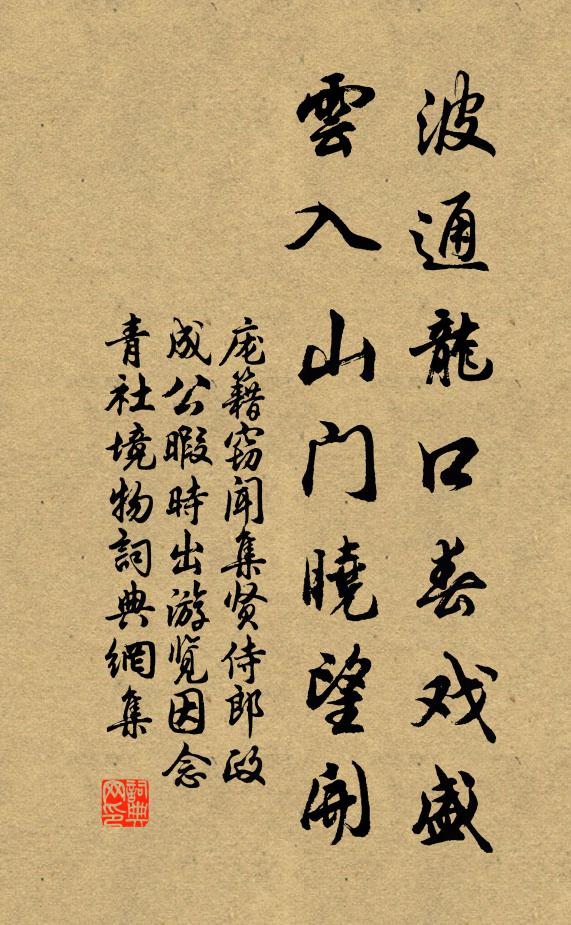 波通龍口春戏盛
雲入山门曉望開
庞籍窃聞集贤侍郎政
成公暇時出游览因念
青社境物詞典網集
詞典网印